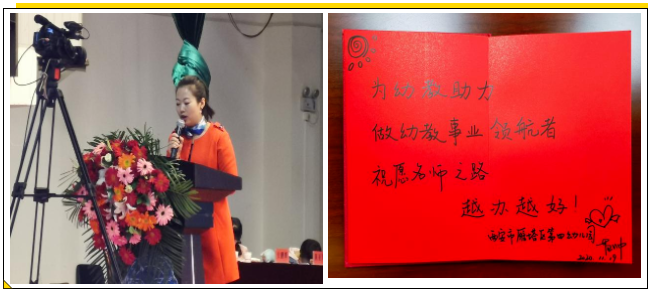 为幼教助力
做幼教事业领航者
祝愿名师之路
越办越好！
西安市雁塔区第四幼儿园